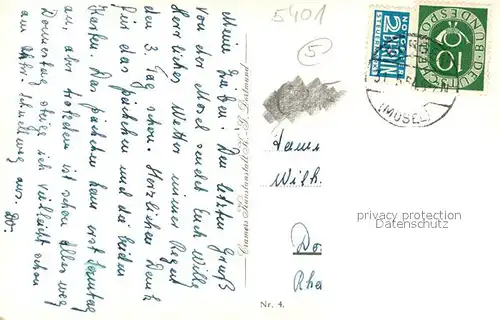 Meine Lieben! Den letzten Gruß
von der Mosel sendet Euch Willy
Herrliches Wetter immer Regen
den 3. Tag schon. Herzlichen Dank
für das päckchen und die beiden
Karten. Das päckchen kam erst Sonntag
an, aber trotzdem ist schon alles weg
Donnerstag steige ich vielleicht schon
am schnellweg aus. Do.
Cramers Kunstanstalt K. G. Dortmund
Nr. 4.
5401
5
NOTOPFER
2 BERLIN
STEUERMARKE
DEUTSCHE BUNDESPOST
10
(MOSEL)
Fam.
Wilh.
Do.
Rhe
privacy protection
Datenschutz